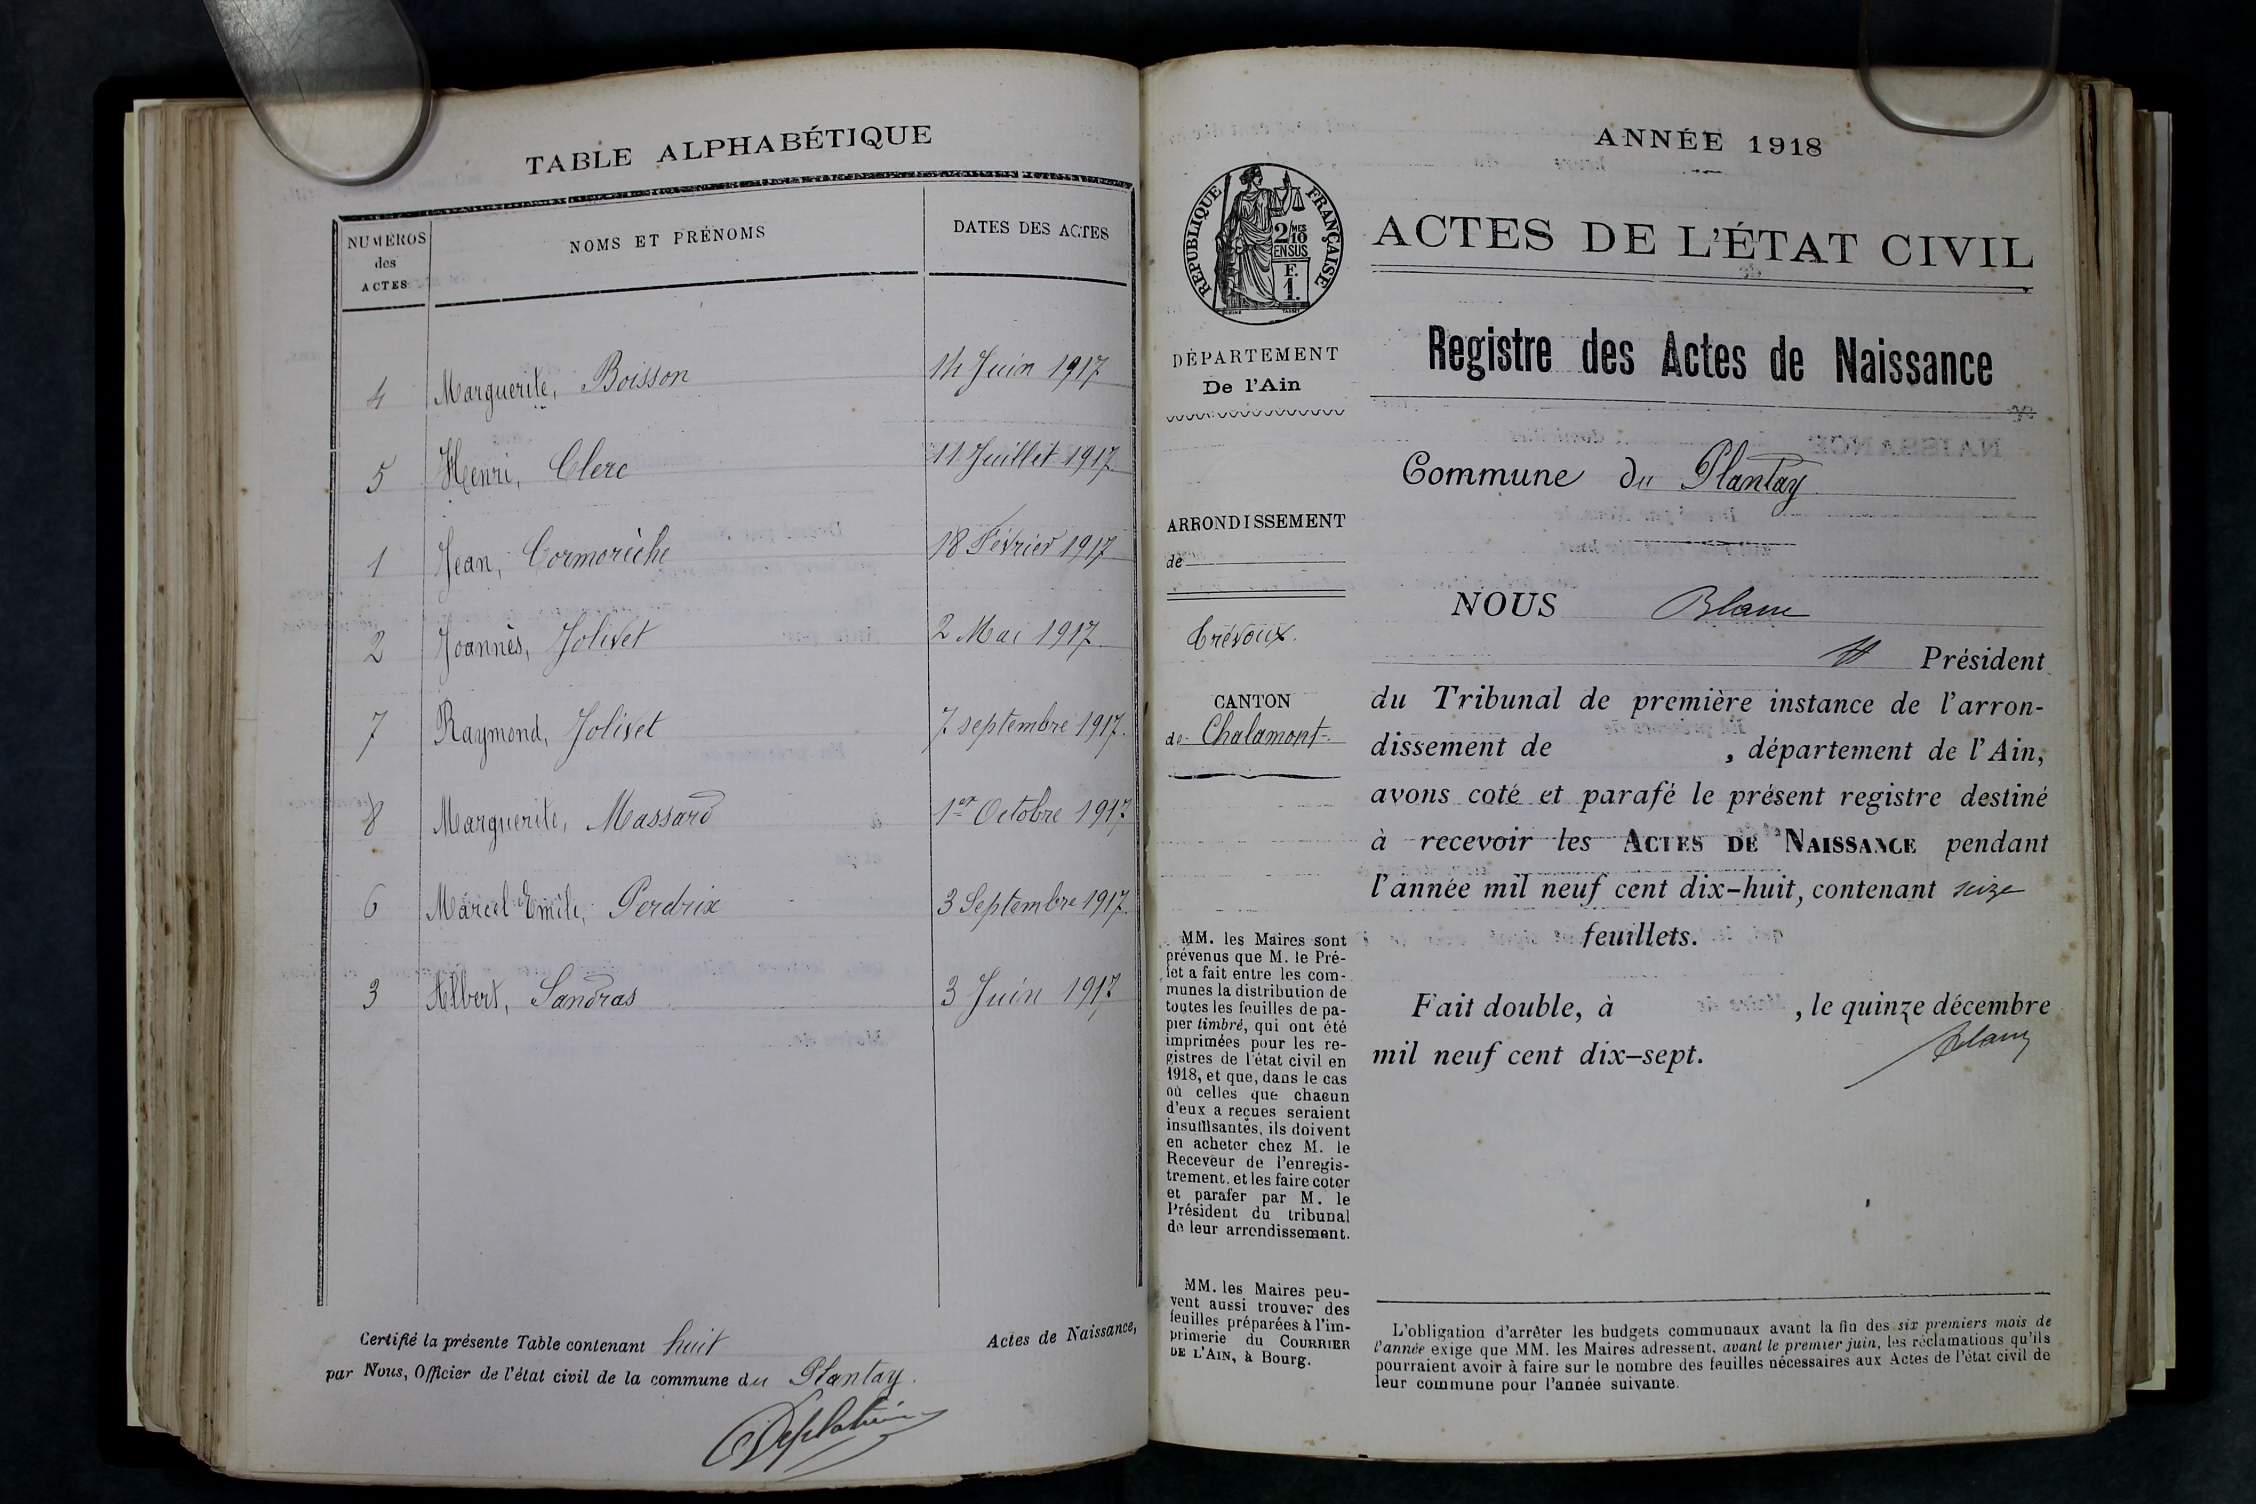 TABLE ALPHABÉTIQUE
NUMÉROS
des
ACTES
NOMS ET PRÉNOMS
DATES DES ACTES
4 Marguerite, Boisson 14 Juin 1917
5 Henri, Clerc 11 Juillet 1917
1 Jean, Cormorèche 18 Février 1917
2 Joannès, Jolivet 2 Mai 1917
7 Raymond, Jolivet 7 septembre 1917.
8 Marguerite, Massard 1er Octobre 1917
6 Marcel Emile, Perdrix 3 Septembre 1917.
3 Albert, Sandras 3 Juin 1917
Certifié la présente Table contenant huit Actes de Naissance,
par Nous, Officier de l'état civil de la commune du Plantay.
ANNÉE 1918
RÉPUBLIQUE FRANÇAISE
2/10MES
EN SUS
F.
1.
ACTES DE L'ÉTAT CIVIL
Registre des Actes de Naissance
DÉPARTEMENT
De l'Ain
ARRONDISSEMENT
de
Trévoux.
CANTON
de Chalamont
MM. les Maires sont
prévenus que M. le Pré-
fet a fait entre les com-
munes la distribution de
toutes les feuilles de pa-
pier timbré, qui ont été
imprimées pour les re-
gistres de l'état civil en
1918, et que, dans le cas
où celles que chacun
d'eux a reçues seraient
insuffisantes, ils doivent
en acheter chez M. le
Receveur de l'enregis-
trement, et les faire coter
et parafer par M. le
Président du tribunal
de leur arrondissement.
MM. les Maires peu-
vent aussi trouver des
feuilles préparées à l'im-
primerie du COURRIER
DE L'AIN, à Bourg.
Commune du Plantay
NOUS Blanc
Président
du Tribunal de première instance de l'arron-
dissement de , département de l'Ain,
avons coté et parafé le présent registre destiné
à recevoir les ACTES DE NAISSANCE pendant
l'année mil neuf cent dix-huit, contenant seize
feuillets.
Fait double, à , le quinze décembre
mil neuf cent dix-sept.
Blanc
L'obligation d'arrêter les budgets communaux avant la fin des six premiers mois de
l'année exige que MM. les Maires adressent, avant le premier juin, les réclamations qu'ils
pourraient avoir à faire sur le nombre des feuilles nécessaires aux Actes de l'état civil de
leur commune pour l'année suivante.